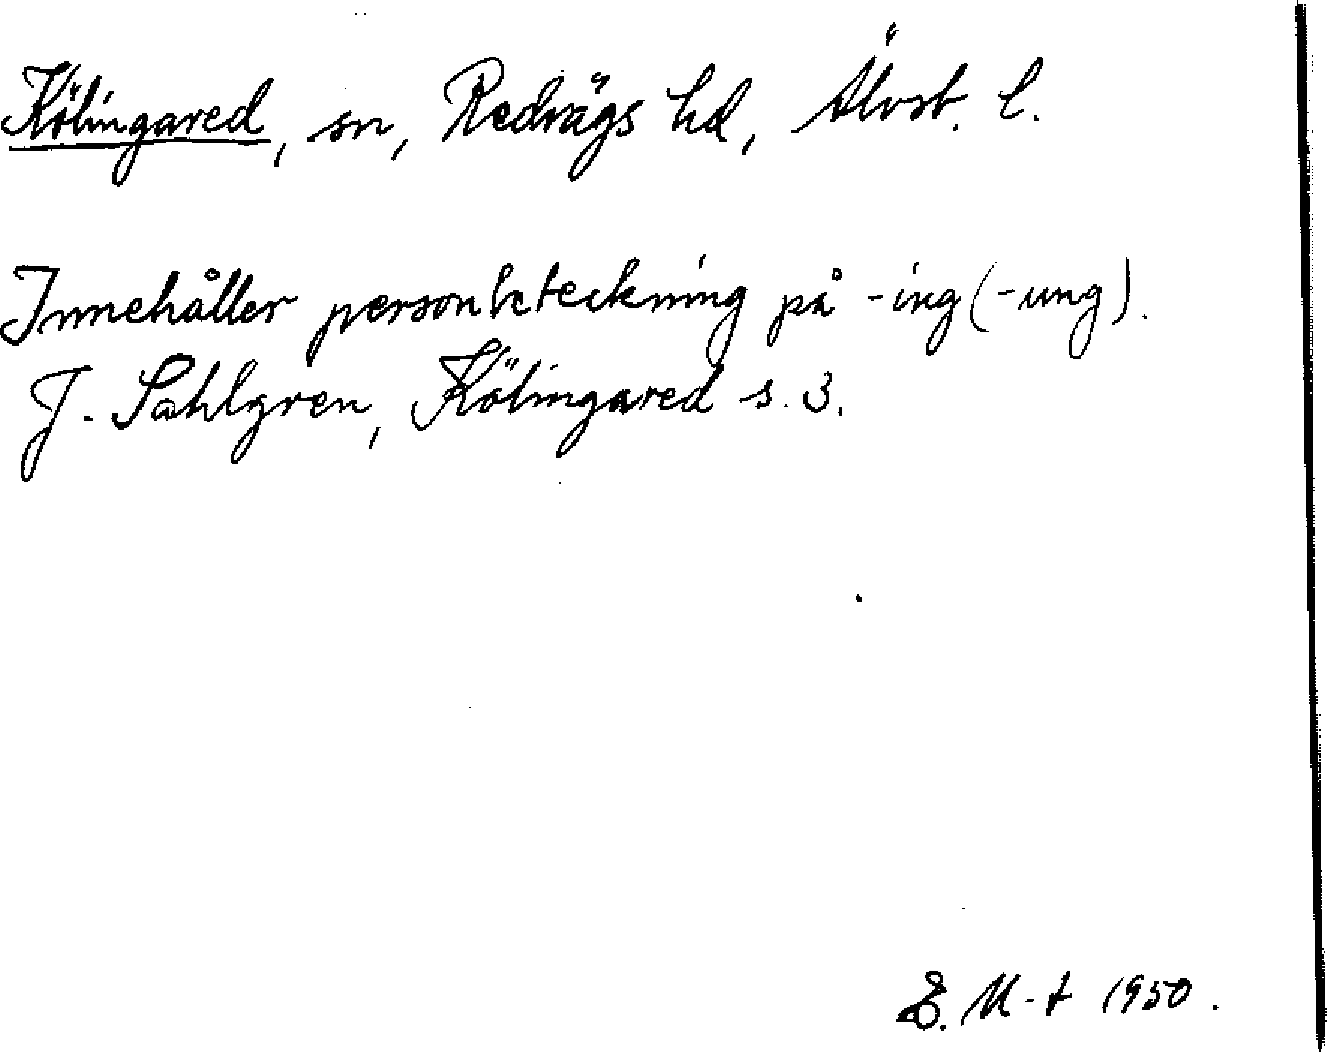 Kölingared, sn, Redvägs hd, Älvsb. l.
Innehåller personbeteckning på -ing (-ung).
J. Sahlgren, Kölingared s. 3.
E. M-t 1950.